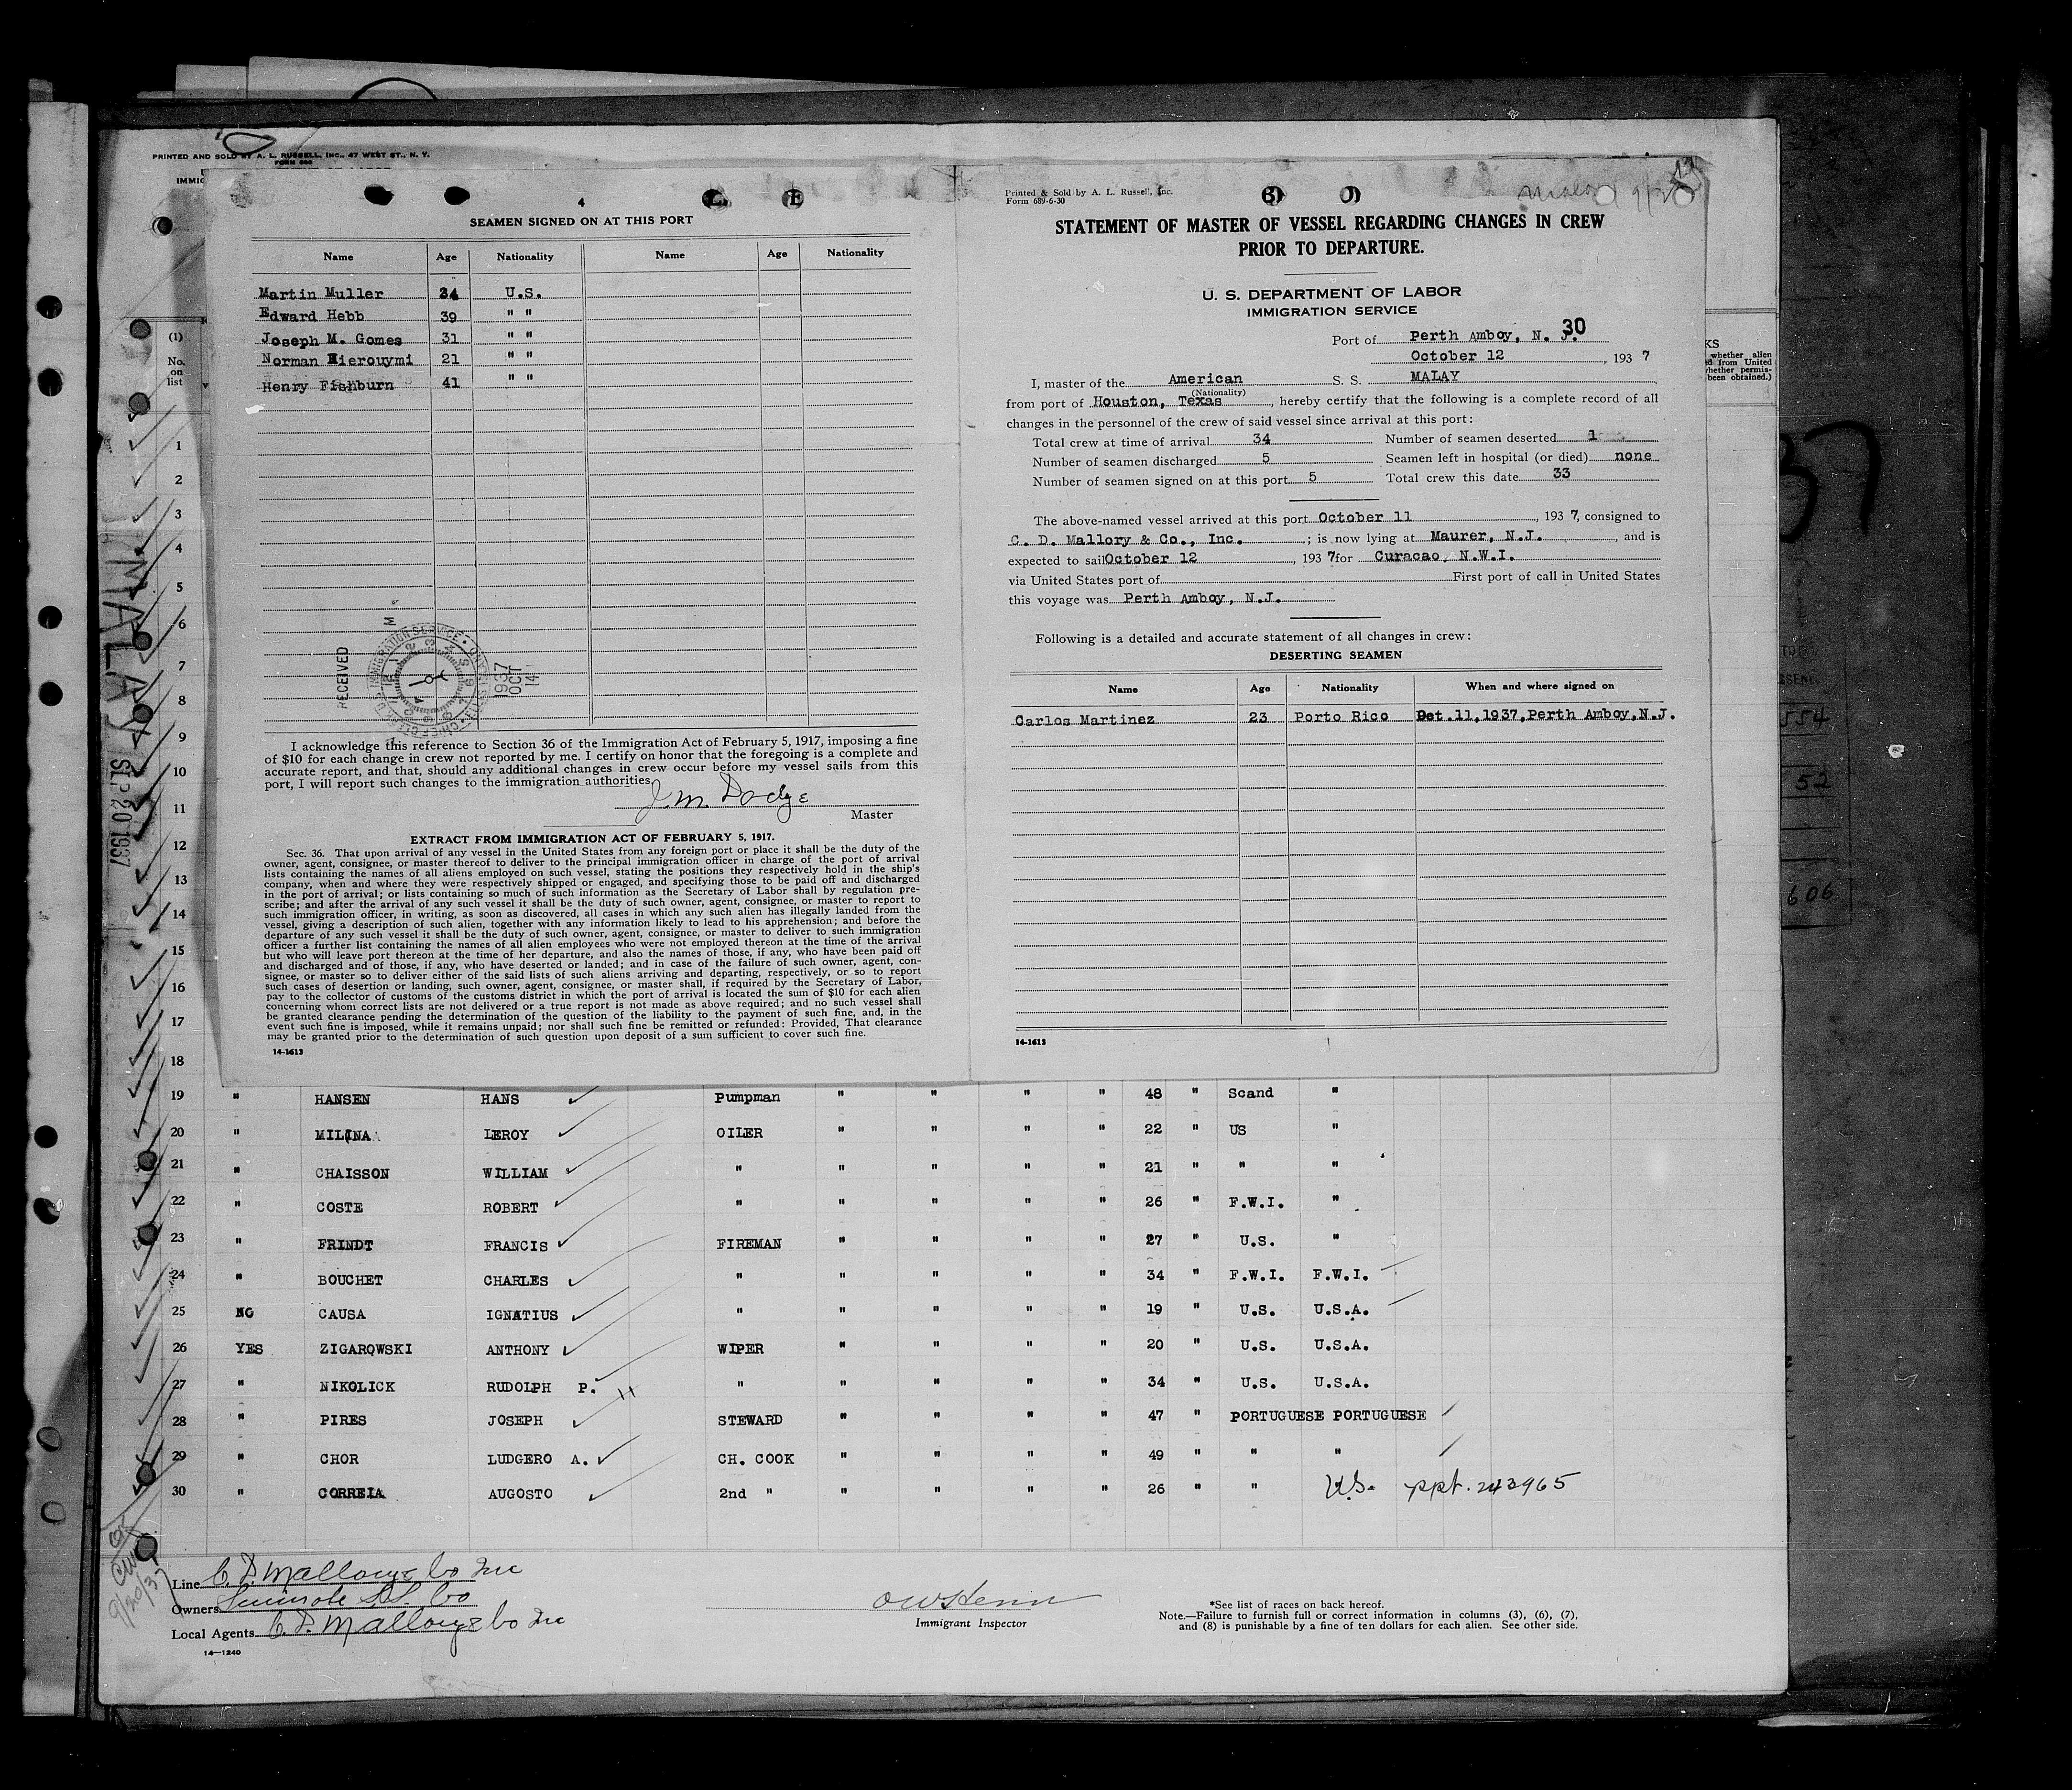 PRINTED AND SOLD BY A. L. RUSSELL, INC., 47 WEST ST., N. Y.
FORM 680
IMMIG
(1)
No. on list
MALAY
SEP 20 1937
4
SEAMEN SIGNED ON AT THIS PORT
Name Age Nationality Name Age Nationality
Martin Muller 34 U.S.
Edward Hebb 39 " "
Joseph M. Gomes 31 " "
Norman Hierouymi 21 " "
Henry Fishburn 41 " "
RECEIVED
1937 OCT 14
I acknowledge this reference to Section 36 of the Immigration Act of February 5, 1917, imposing a fine
of $10 for each change in crew not reported by me. I certify on honor that the foregoing is a complete and
accurate report, and that, should any additional changes in crew occur before my vessel sails from this
port, I will report such changes to the immigration authorities.
J. M. Dodge
Master
EXTRACT FROM IMMIGRATION ACT OF FEBRUARY 5, 1917.
Sec. 36. That upon arrival of any vessel in the United States from any foreign port or place it shall be the duty of the
owner, agent, consignee, or master thereof to deliver to the principal immigration officer in charge of the port of arrival
lists containing the names of all aliens employed on such vessel, stating the positions they respectively hold in the ship's
company, when and where they were respectively shipped or engaged, and specifying those to be paid off and discharged
in the port of arrival; or lists containing so much of such information as the Secretary of Labor shall by regulation pre-
scribe; and after the arrival of any such vessel it shall be the duty of such owner, agent, consignee, or master to report to
such immigration officer, in writing, as soon as discovered, all cases in which any such alien has illegally landed from the
vessel, giving a description of such alien, together with any information likely to lead to his apprehension; and before the
departure of any such vessel it shall be the duty of such owner, agent, consignee, or master to deliver to such immigration
officer a further list containing the names of all alien employees who were not employed thereon at the time of the arrival
but who will leave port thereon at the time of her departure, and also the names of those, if any, who have been paid off
and discharged and of those, if any, who have deserted or landed; and in case of the failure of such owner, agent, con-
signee, or master so to deliver either of the said lists of such aliens arriving and departing, respectively, or so to report
such cases of desertion or landing, such owner, agent, consignee, or master shall, if required by the Secretary of Labor,
pay to the collector of customs of the customs district in which the port of arrival is located the sum of $10 for each alien
concerning whom correct lists are not delivered or a true report is not made as above required; and no such vessel shall
be granted clearance pending the determination of the question of the liability to the payment of such fine, and, in the
event such fine is imposed, while it remains unpaid; nor shall such fine be remitted or refunded: Provided, That clearance
may be granted prior to the determination of such question upon deposit of a sum sufficient to cover such fine.
14-1613
Printed & Sold by A. L. Russell, Inc.
Form 689-6-30
Malay 9/20
STATEMENT OF MASTER OF VESSEL REGARDING CHANGES IN CREW
PRIOR TO DEPARTURE.
U. S. DEPARTMENT OF LABOR
IMMIGRATION SERVICE
30
Port of Perth Amboy, N. J.
October 12, 1937
I, master of the American S. S. MALAY
(Nationality)
from port of Houston, Texas, hereby certify that the following is a complete record of all
changes in the personnel of the crew of said vessel since arrival at this port:
Total crew at time of arrival 34 Number of seamen deserted 1
Number of seamen discharged 5 Seamen left in hospital (or died) none
Number of seamen signed on at this port 5 Total crew this date 33
The above-named vessel arrived at this port October 11, 1937, consigned to
C. D. Mallory & Co., Inc.; is now lying at Maurer, N.J., and is
expected to sail October 12, 1937 for Curacao, N.W.I.
via United States port of First port of call in United States
this voyage was Perth Amboy, N.J.
Following is a detailed and accurate statement of all changes in crew:
DESERTING SEAMEN
Name Age Nationality When and where signed on
Carlos Martinez 23 Porto Rico Oct.11,1937,Perth Amboy,N.J.
14-1613
KS
whether alien
d from United
whether permis-
been obtained.)
37
554
52
606
1
2
3
4
5
6
7
8
9
10
11
12
13
14
15
16
17
18
19 " HANSEN HANS Pumpman " " " " 48 " Scand "
20 " MILINA LEROY OILER " " " " 22 " US "
21 " CHAISSON WILLIAM " " " " " 21 " " "
22 " COSTE ROBERT " " " " " 26 " F.W.I. "
23 " FRINDT FRANCIS FIREMAN " " " " 27 " U.S. "
24 " BOUCHET CHARLES " " " " " 34 " F.W.I. F.W.I.
25 NO CAUSA IGNATIUS " " " " " 19 " U.S. U.S.A.
26 YES ZIGAROWSKI ANTHONY WIPER " " " " 20 " U.S. U.S.A.
27 " NIKOLICK RUDOLPH P. " " " " " 34 " U.S. U.S.A.
28 " PIRES JOSEPH STEWARD " " " " 47 " PORTUGUESE PORTUGUESE
29 " CHOR LUDGERO A. CH. COOK " " " " 49 " " "
30 " CORREIA AUGOSTO 2nd " " " " " 26 " " U.S. ppt. 243965
9/20/37
Line C. D. Mallory & Co Inc
Owners Seminole S.S. Co
Local Agents C. D. Mallory & Co Inc
14-1240
Immigrant Inspector
*See list of races on back hereof.
Note.—Failure to furnish full or correct information in columns (3), (6), (7),
and (8) is punishable by a fine of ten dollars for each alien. See other side.